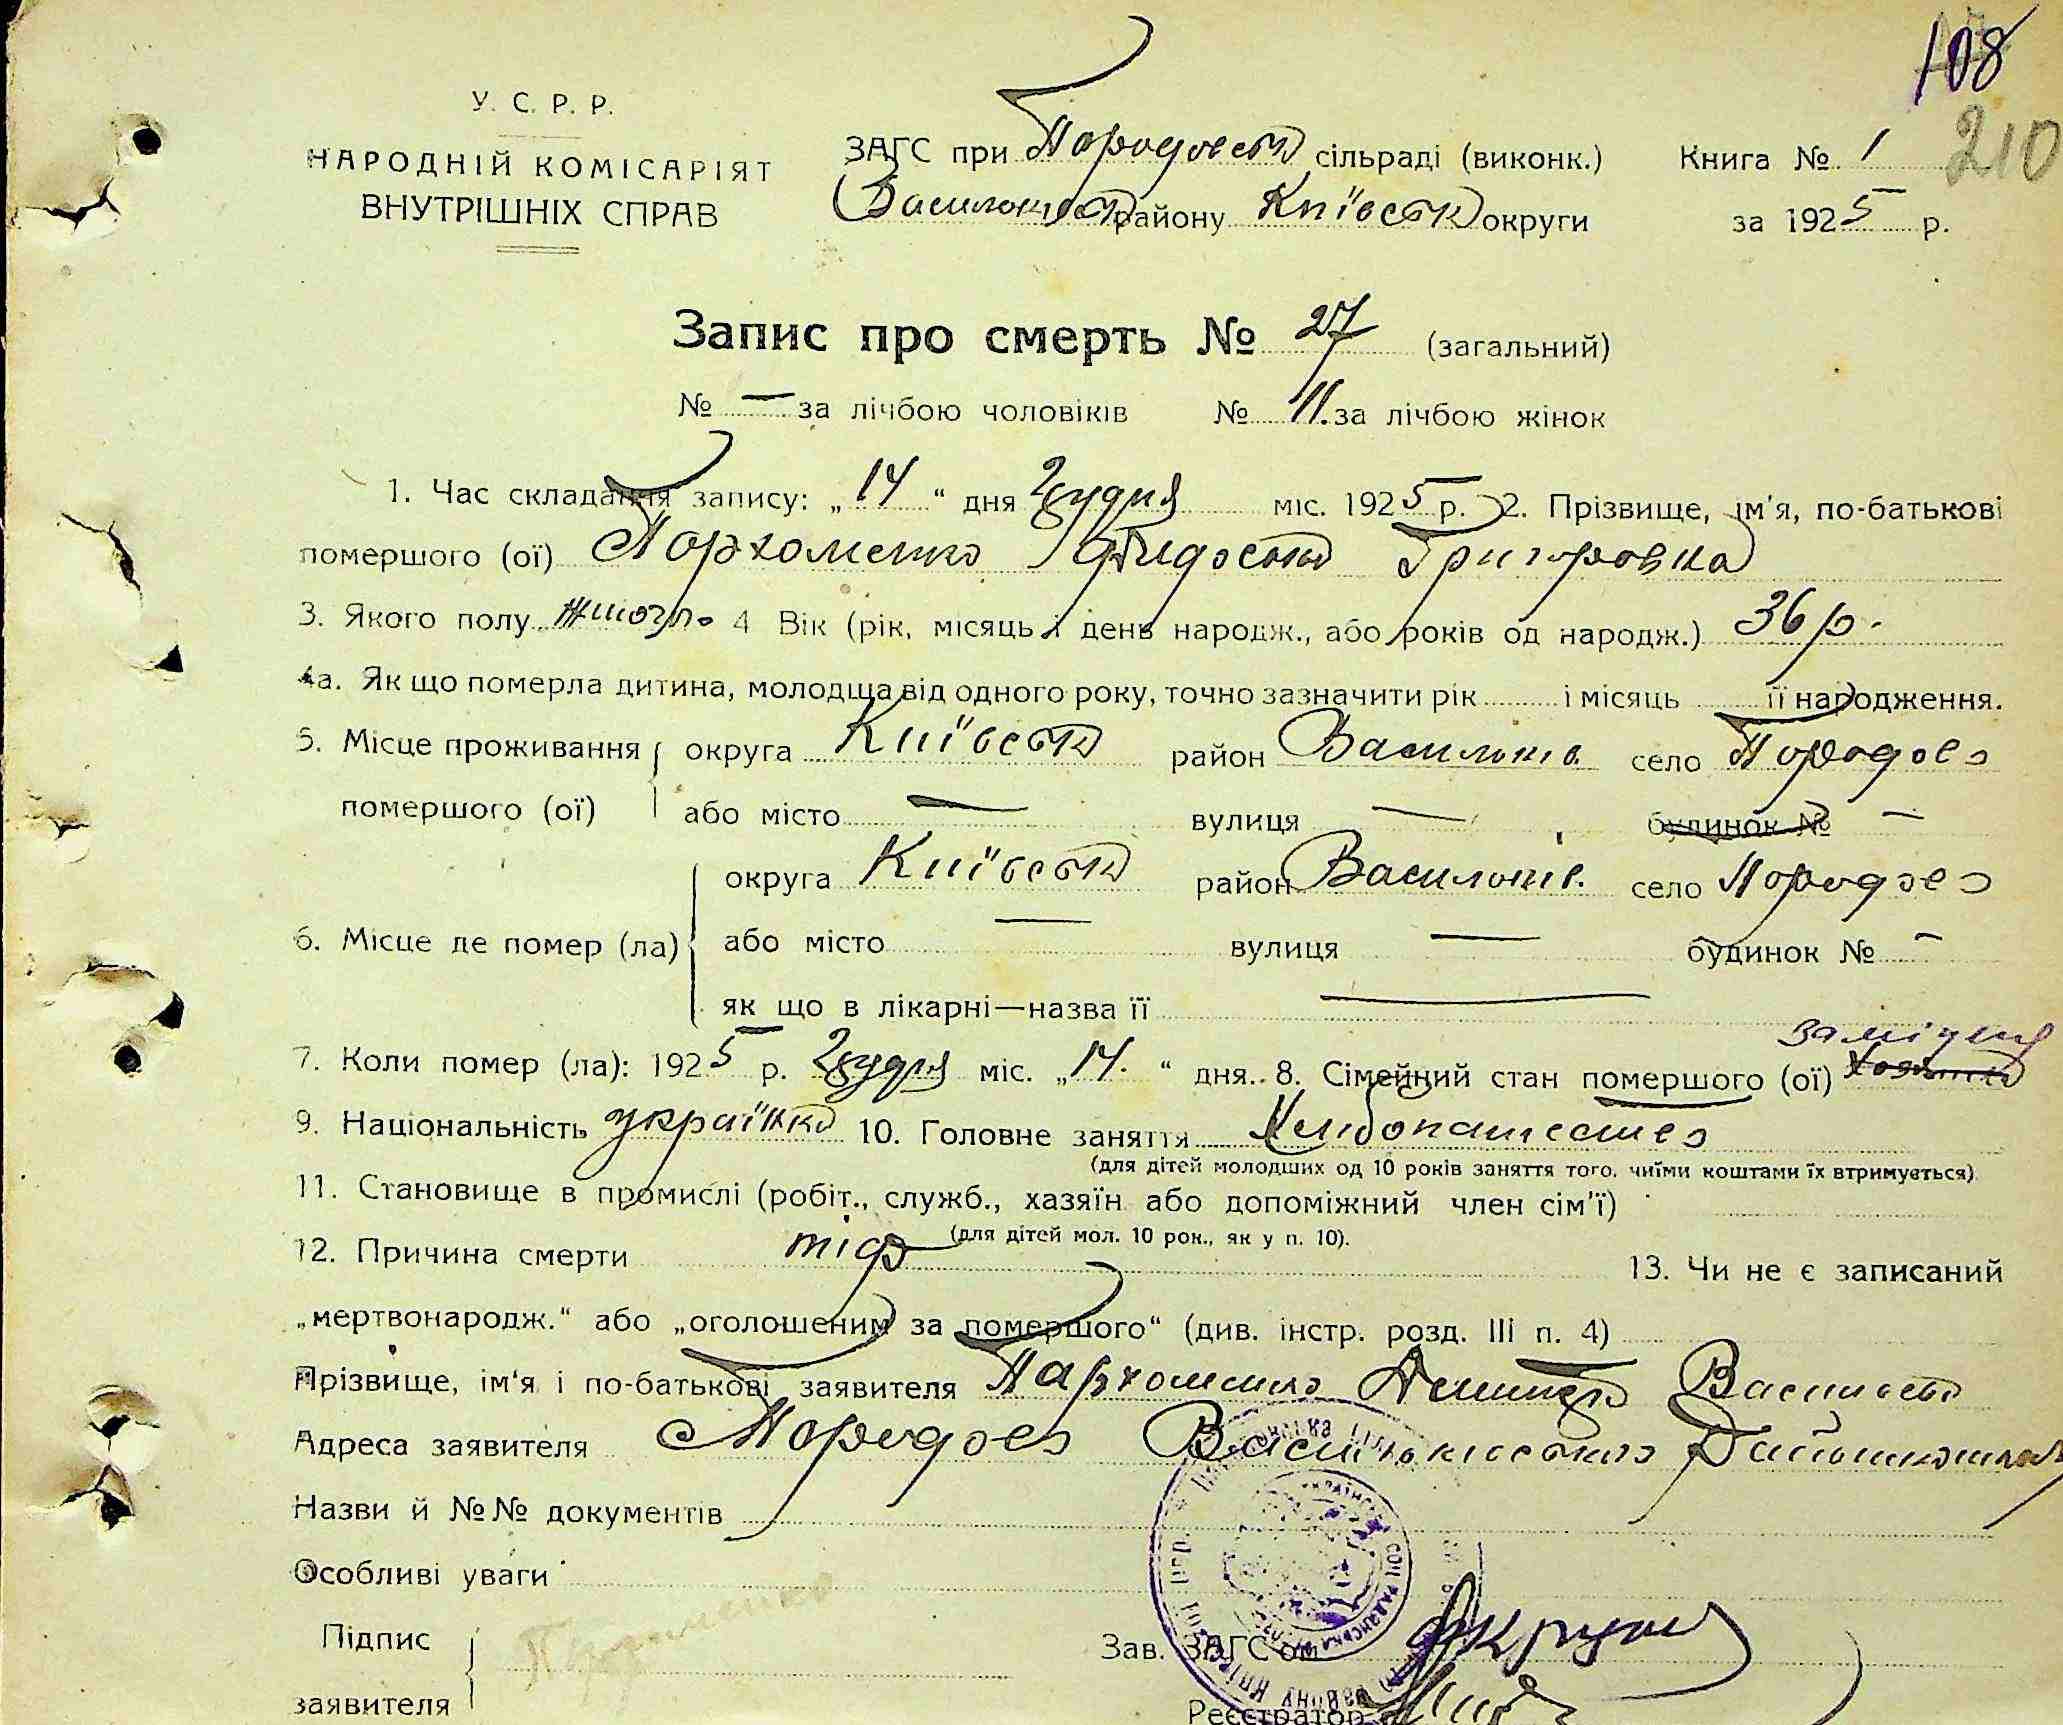 108
210
У. С. Р. Р.
НАРОДНІЙ КОМІСАРІЯТ
ВНУТРІШНІХ СПРАВ
ЗАГС при сільраді (виконк.) Книга № 1
району Київськ округи за 1925 р.
Запис про смерть № 27 (загальний)
№ — за лічбою чоловіків № 11. за лічбою жінок
1. Час складання запису: „14“ дня Грудня міс. 1925 р. 2. Прізвище, ім'я, по-батькові
помершого (ої) Пархоменко Григоровна
3. Якого полу жіночло 4 Вік (рік, місяць і день народж., або років од народж.) 36 р.
4а. Як що померла дитина, молодша від одного року, точно зазначити рік і місяць її народження.
5. Місце проживання округа Київськ район Васильків. село
помершого (ої) або місто — вулиця — будинок № —
округа Київськ район Васильків. село
6. Місце де помер (ла) або місто — вулиця — будинок № —
як що в лікарні—назва її —
заміжня
7. Коли помер (ла): 1925 р. Грудня міс. „14.“ дня. 8. Сімейний стан помершого (ої)
9. Національність українка 10. Головне заняття
(для дітей молодших од 10 років заняття того, чиїми коштами їх втримується)
11. Становище в промислі (робіт., служб., хазяїн або допоміжний член сім'ї)
(для дітей мол. 10 рок., як у п. 10).
12. Причина смерти тіф 13. Чи не є записаний
„мертвонародж.“ або „оголошеним за помершого“ (див. інстр. розд. III п. 4)
Прізвище, ім'я і по-батькові заявителя Пархоменко
Адреса заявителя
Назви й №№ документів
Особливі уваги
Підпис
заявителя
Зав. ЗАГС'ом
Реєстратор